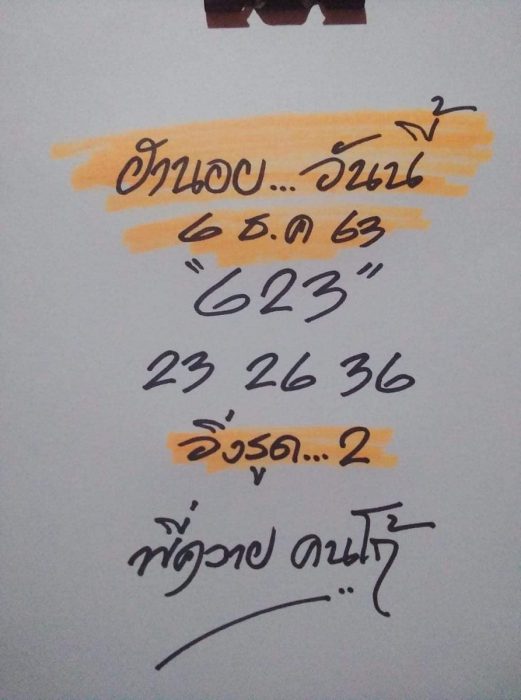 ฮานอย... วันนี้
6 ธ.ค 63
"623"
23 26 36
วิ่งรูด... 2
พี่ควาย คนโก้